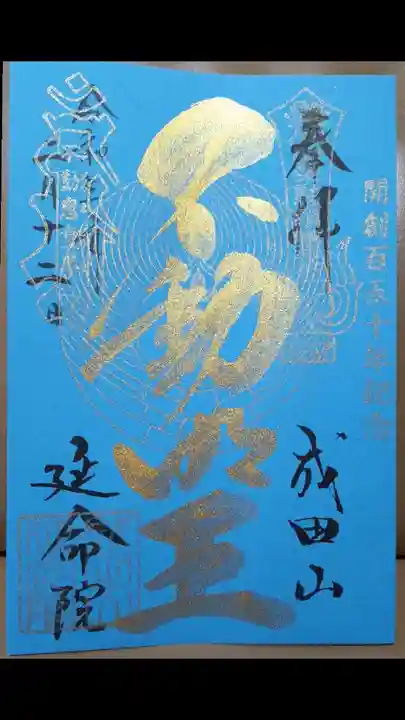 奉拝
開創百五十年記念
成田山
不動明王
二月十二日
延命院